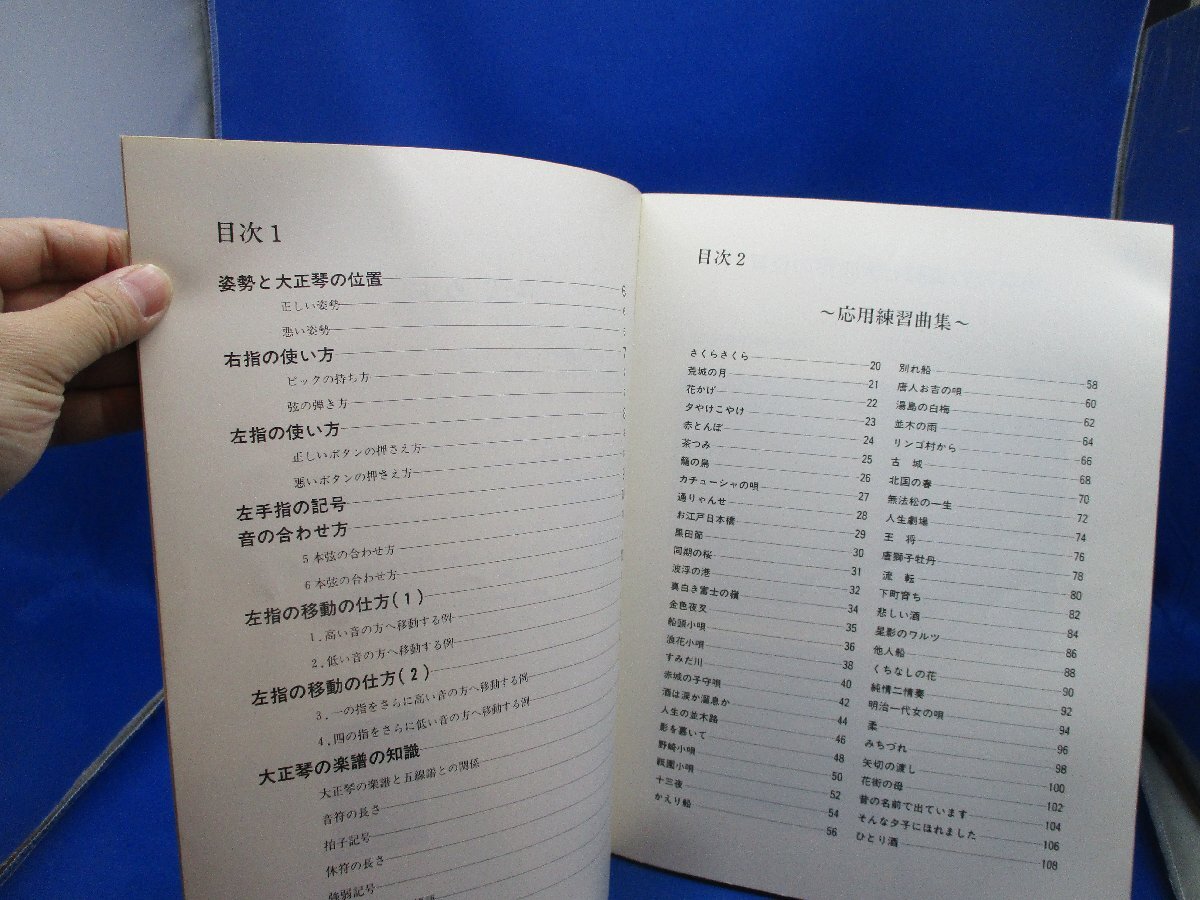 目次1
姿勢と大正琴の位置 6
正しい姿勢 6
悪い姿勢 6
右指の使い方 7
ピックの持ち方
弦の弾き方
左指の使い方 8
正しいボタンの押さえ方
悪いボタンの押さえ方
左手指の記号
音の合わせ方
5本弦の合わせ方
6本弦の合わせ方
左指の移動の仕方(1)
1.高い音の方へ移動する例
2.低い音の方へ移動する例
左指の移動の仕方(2)
3.一の指をさらに高い音の方へ移動する例
4.四の指をさらに低い音の方へ移動する例
大正琴の楽譜の知識
大正琴の楽譜と五線譜との関係
音符の長さ
拍子記号
休符の長さ
強弱記号
目次2
～応用練習曲集～
さくらさくら 20
荒城の月 21
花かげ 22
夕やけこやけ 23
赤とんぼ 24
茶つみ 25
籠の鳥 26
カチューシャの唄 27
通りゃんせ 28
お江戸日本橋 29
黒田節 30
同期の桜 31
波浮の港 32
真白き富士の嶺 34
金色夜叉 35
船頭小唄 36
浪花小唄 38
すみだ川 40
赤城の子守唄 42
酒は涙か溜息か 44
人生の並木路 46
影を慕いて 48
野崎小唄 50
祇園小唄 52
十三夜 54
かえり船 56
別れ船 58
唐人お吉の唄 60
湯島の白梅 62
並木の雨 64
リンゴ村から 66
古城 68
北国の春 70
無法松の一生 72
人生劇場 74
王将 76
唐獅子牡丹 78
流転 80
下町育ち 82
悲しい酒 84
星影のワルツ 86
他人船 88
くちなしの花 90
純情二重奏 92
明治一代女の唄 94
柔 96
みちづれ 98
矢切の渡し 100
花街の母 102
昔の名前で出ています 104
そんな夕子にほれました 106
ひとり酒 108